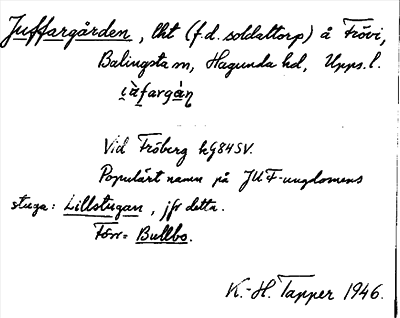 Juffargården, lht (f.d. soldattorp) å Frövi,
Balingsta sn, Hagunda hd, Upps. l.
Vid Fröberg kg845V.
Populärt namn på JUF-ungdomens
stuga: Lillstugan, jfr detta.
Förr = Bullbo.
K.-H. Tapper 1946.